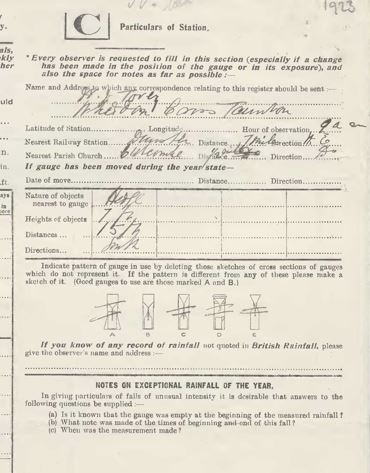 1923
C
Particulars of Station.
* Every observer is requested to fill in this section (especially if a change
has been made in the position of the gauge or in its exposure), and
also the space for notes as far as possible :—
Name and Address to which any correspondence relating to this register should be sent :—
Taunton
Latitude of Station Longitude Hour of observation 9 a m
Nearest Railway Station Distance Direction
Nearest Parish Church Distance Direction
If gauge has been moved during the year/state—
Date of move Distance Direction
Nature of objects
nearest to gauge
Heights of objects
Distances
Directions
Indicate pattern of gauge in use by deleting those sketches of cross sections of gauges
which do not represent it. If the pattern is different from any of these please make a
sketch of it. (Good gauges to use are those marked A and B.)
A B C D E
If you know of any record of rainfall not quoted in British Rainfall, please
give the observer's name and address :—
NOTES ON EXCEPTIONAL RAINFALL OF THE YEAR.
In giving particulars of falls of unusual intensity it is desirable that answers to the
following questions be supplied :—
(a) Is it known that the gauge was empty at the beginning of the measured rainfall ?
(b) What note was made of the times of beginning and end of this fall ?
(c) When was the measurement made ?